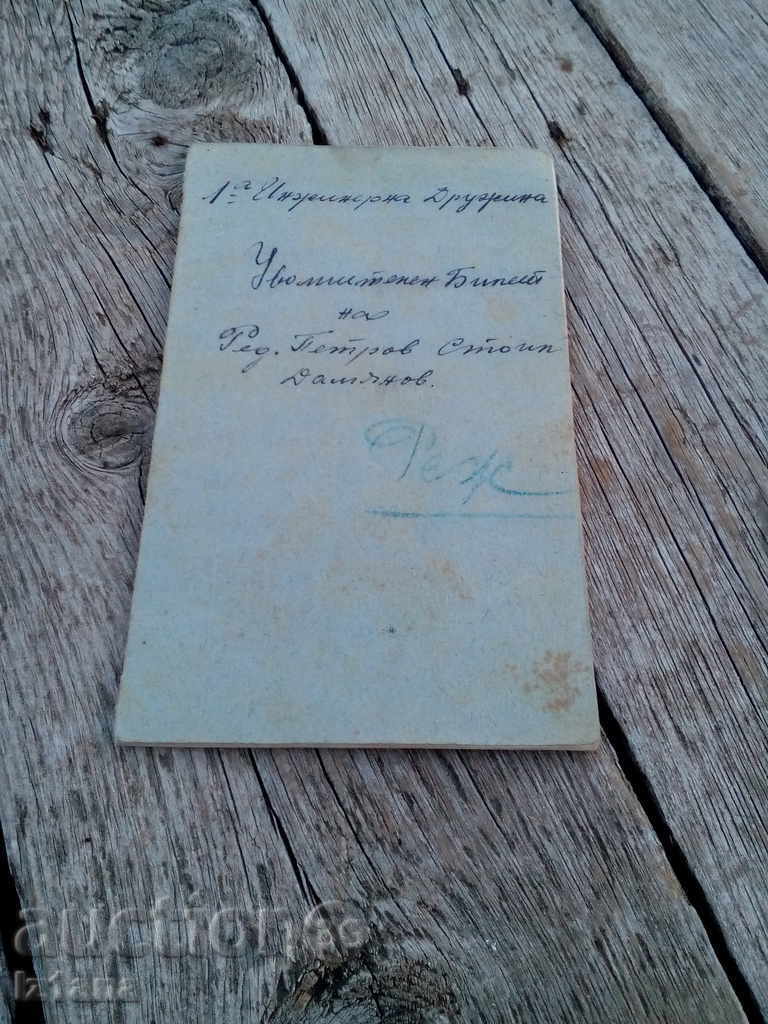 1-а Инженерна Дружина
Уволнителен Билет
на
Ред. Петров Стоил
Дамянов.
Реж
auction BG
Iziana